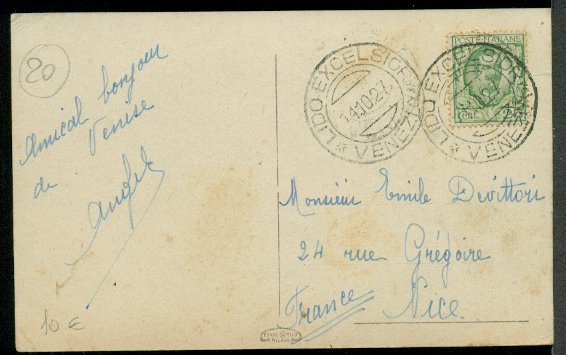 20
Amical bonjour
de Venise
10 €
LIDO EXCELSIOR
14.10.27
* VENEZIA
POSTE ITALIANE
LIDO EXCELSIOR
* VENEZIA
Monsieur Emile Devittori
24 rue Grégoire
France Nice